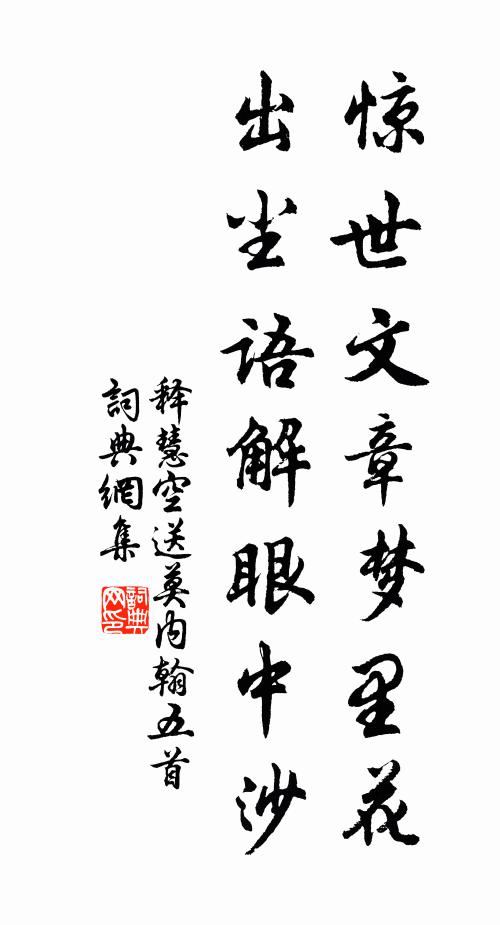 惊世文章梦里花
出尘语解眼中沙
释慧空送莫内翰五首
詞典網集
詞典网印